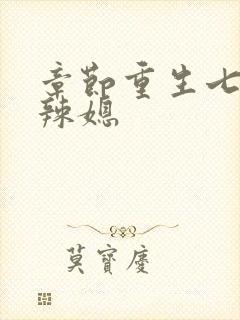 章節重生七
辣媳
莫寶慶